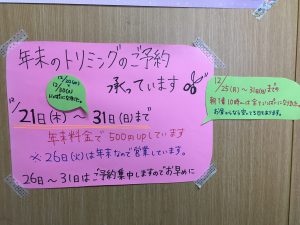 年末のトリミングのご予約
承っています
12/21日(木)〜31日(日)まで
年末料金で500円upしています
※26日(火)は年末なので営業しています。
26日〜31日はご予約集中しますのでお早めに
12/30(土)
いっぱいになりました。
12/25(月)〜31日(日)までの
朝1番10時〜は全ていっぱいになりました。